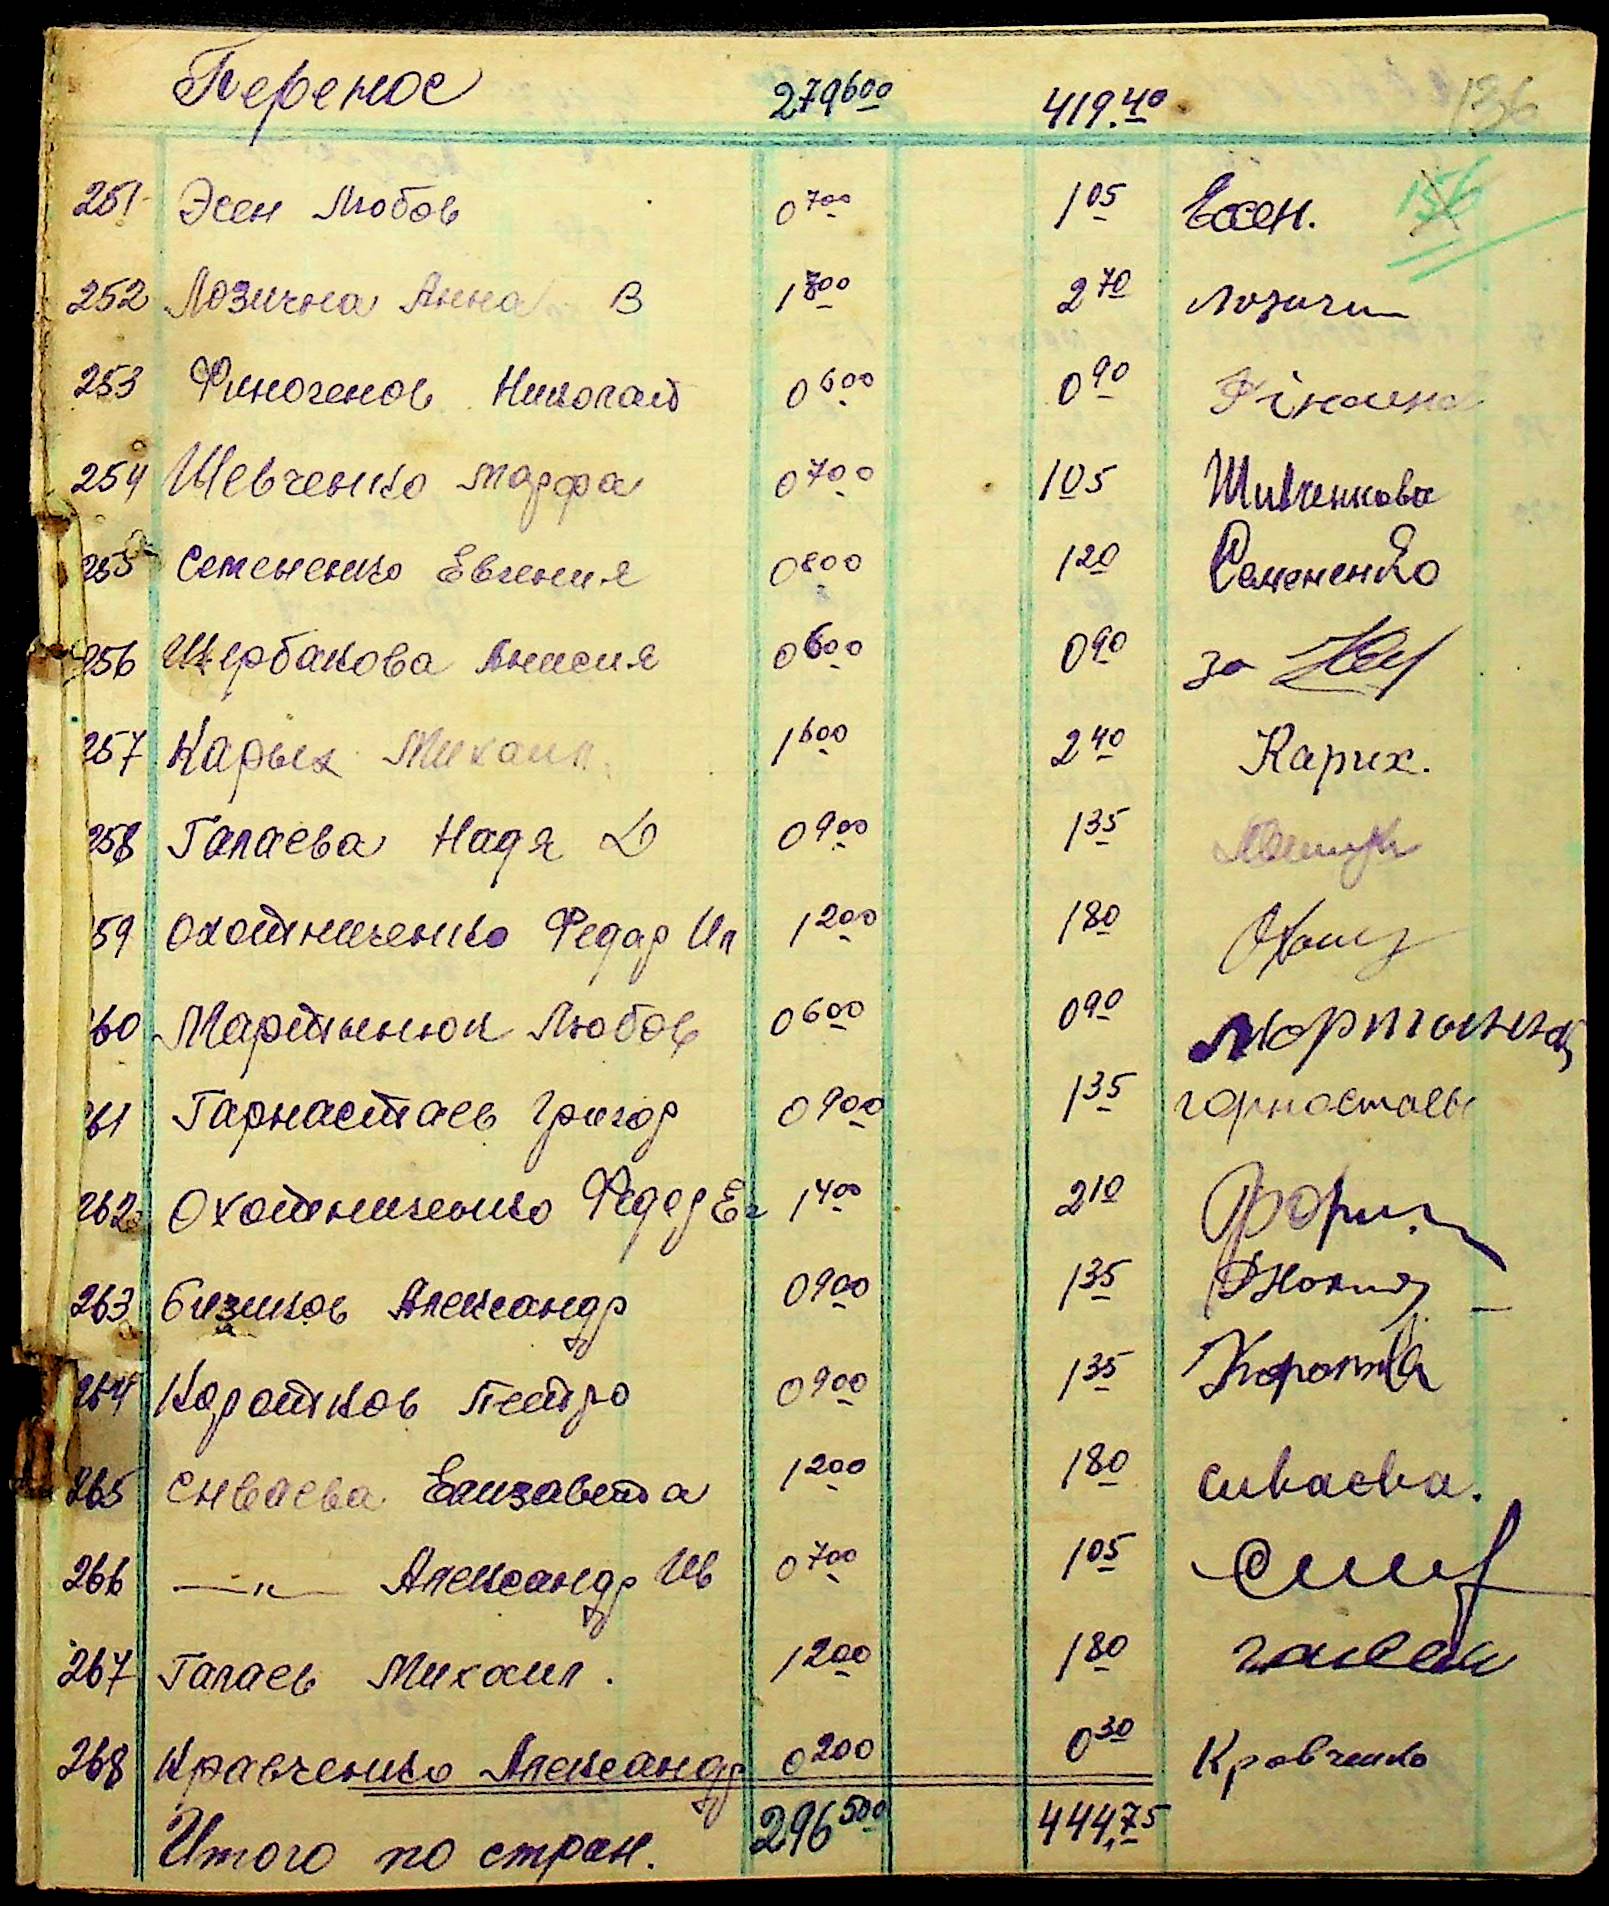 Перенос 279600 419.40 136
251 Эсен Любов 0700 105 Ессен. 156
252 Лозична Анна В 1800 270 Лозични
253 Финогенов Николай 0600 090
254 Шевченко Марфа 0700 105 Шивченкова
255 Семененко Евгения 0800 120 Семененко
256 Щербакова Анисия 0600 090 за
257 Карых Михаил. 1600 240 Карих.
258 Галаева Надя Д 0900 135
259 Охотниченко Федар Ил 1200 180
260 Мартынюк Любов 0600 090 Мартынюк
261 Гарнастаев Григор 0900 135 горностаев
262 Охотниченко Федор Ег 1400 210
263 Бизиков Александр 0900 135
264 Коротков Петро 0900 135
265 Сиваева Елизавета 1200 180 Сиваева.
266 —"— Александр Ив 0700 105
267 Галаев Михаил. 1200 180 галаев
268 Кравченко Александр 0200 030 Кровченко
Итого по стран. 296500 444,75